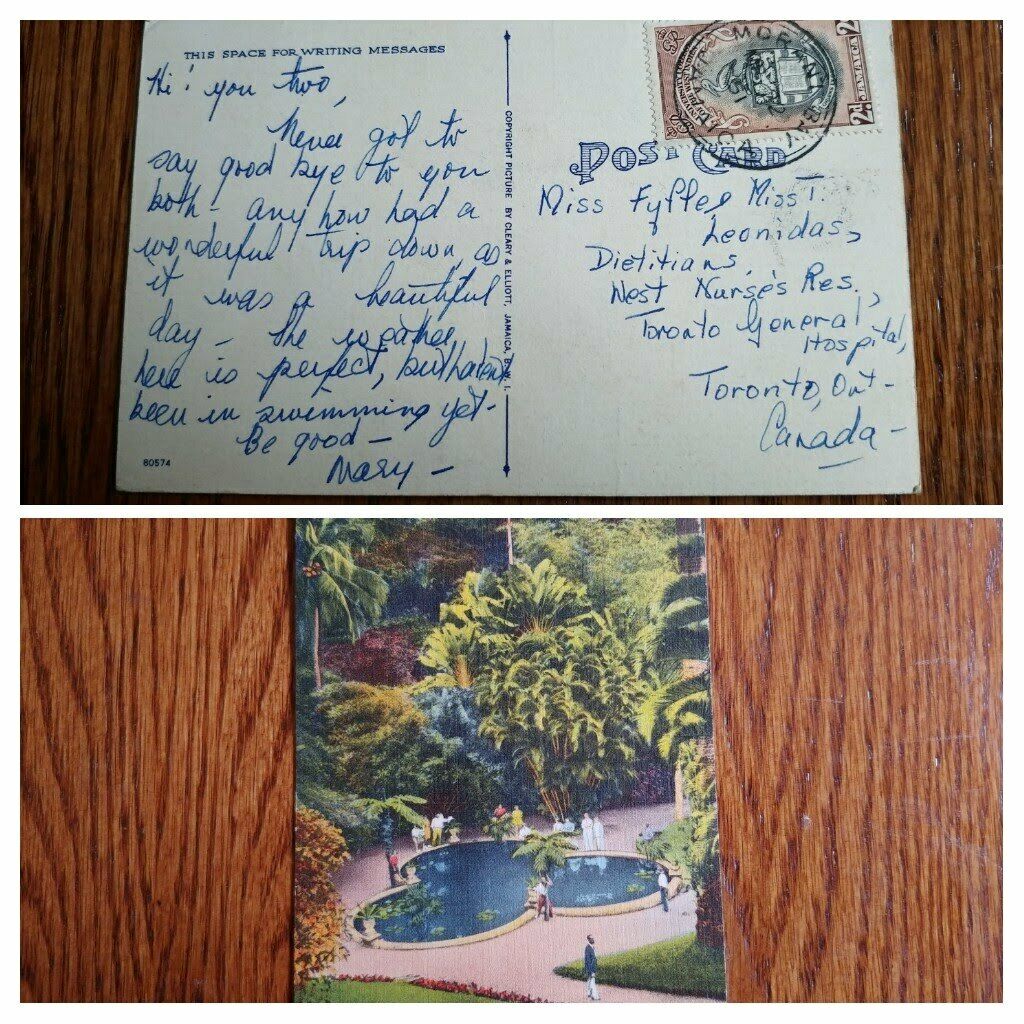 THIS SPACE FOR WRITING MESSAGES
Hi! you two,
Never got to
say good bye to you
both - any how had a
wonderful trip down, as
it was a beautiful
day - The weather
here is perfect, but haven't
been in swimming yet -
Be good -
Mary -
80574
COPYRIGHT PICTURE BY CLEARY & ELLIOTT, JAMAICA, B.W.I.
2D
JAMAICA
2D
MORANT BAY
JAMAICA
POST CARD
Miss Fyffe, Miss T.
Leonidas,
Dietitians,
West Nurse's Res.,
Toronto General
Hospital,
Toronto, Ont -
Canada -